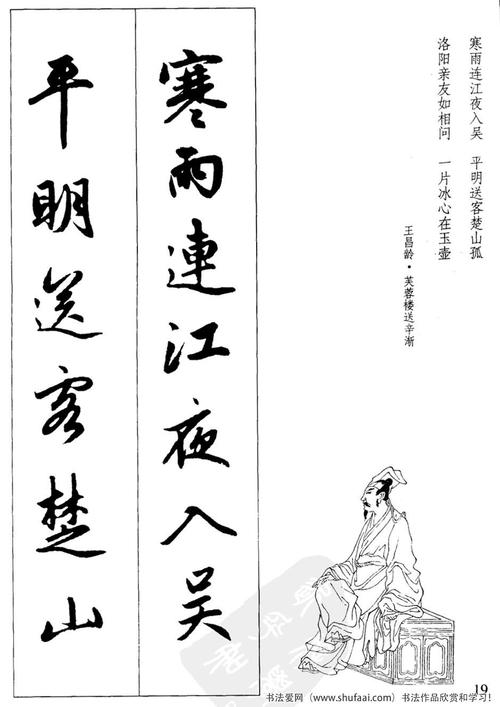 寒雨连江夜入吴　平明送客楚山孤
洛阳亲友如相问　一片冰心在玉壶
王昌龄·芙蓉楼送辛渐
寒雨連江夜入吴
平明送客楚山
19
书法爱网（www.shufaai.com）书法作品欣赏和学习！